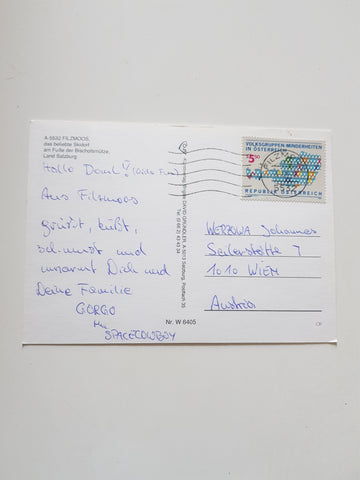 A-5532 FILZMOOS,
das beliebte Skidorf
am Fuße der Bischofsmütze,
Land Salzburg
Aus Filzmoos
grüßt, küßt,
und
umarmt Dich und
Deine Familie
GORGO
SPACECOWBOY
DAVID GRUNDLER, A-5073 Salzburg, Postfach 35
Nr. W 6405
VOLKSGRUPPEN MINDERHEITEN
IN ÖSTERREICH
5.50
REPUBLIK ÖSTERREICH
FILZMOOS
5532
WERBOWA Johannes
Seilerstätte 7
1010 WIEN
Austria